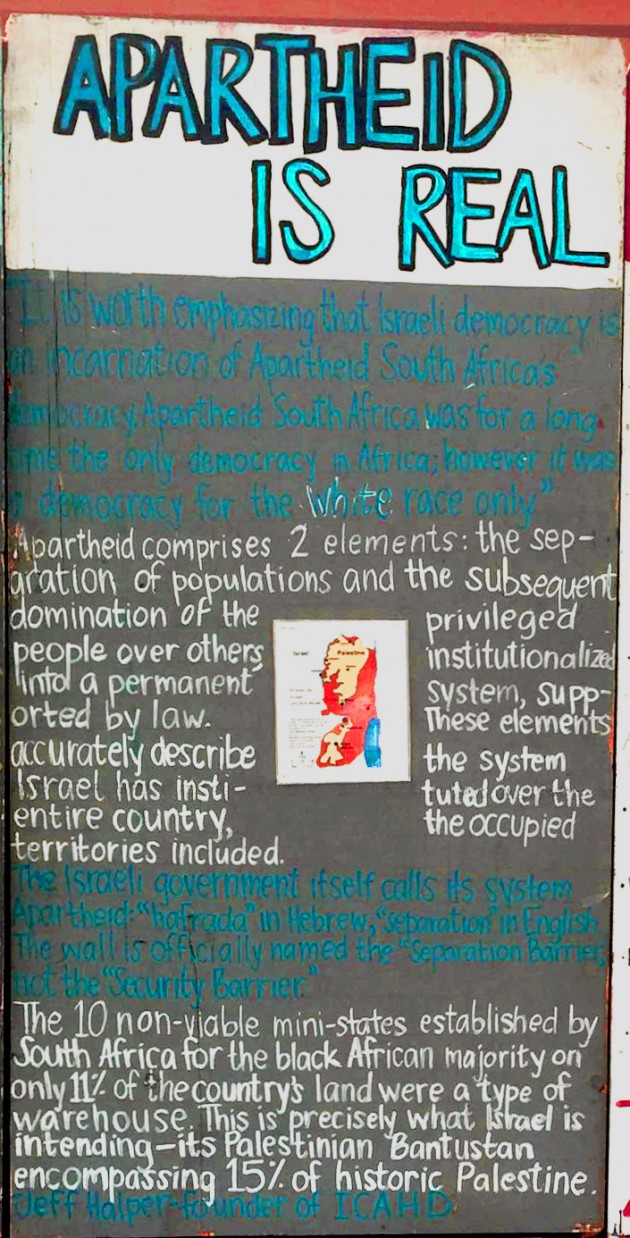 APARTHEID
IS REAL
"It is worth emphasizing that Israeli democracy is
an incarnation of Apartheid South Africa's
democracy. Apartheid South Africa was for a long
time the only democracy in Africa; however it was
a democracy for the white race only."
Apartheid comprises 2 elements: the sep-
aration of populations and the subsequent
domination of the privileged
people over others institutionalized
into a permanent system, supp-
orted by law. These elements
accurately describe the system
Israel has insti- tuted over the
entire country, the occupied
territories included.
Palestine
The Israeli government itself calls its system
Apartheid: "hafrada" in Hebrew, "separation" in English.
The wall is officially named the "Separation Barrier,"
not the "Security Barrier."
The 10 non-viable mini-states established by
South Africa for the black African majority on
only 11% of the country's land were a type of
warehouse. This is precisely what Israel is
intending-its Palestinian Bantustan
encompassing 15% of historic Palestine.
Jeff Halper-founder of ICAHD